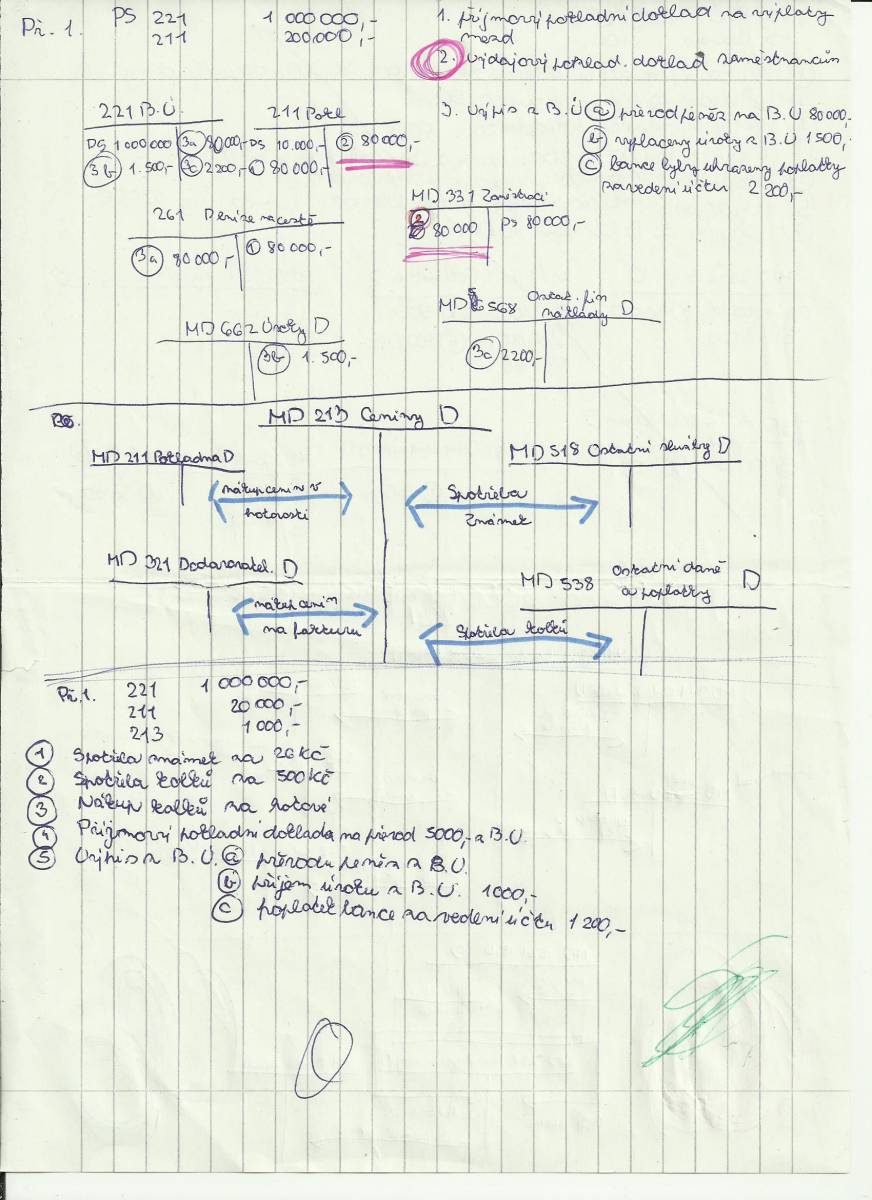 Př. 1. PS 221 1 000 000,-
211 200.000,-
1. příjmový pokladní doklad na výplaty
mezd
2. výdajový poklad. doklad zaměstnancům
3. Výpis z B.Ú a) převod peněz na B.Ú 80000,-
b) vyplaceny úroky z B.Ú 1500,-
c) bance byly uhrazeny poplatky
za vedení účtu 2 200,-
221 B.Ú.
PS 1 000000 3a 80000,-
3b 1.500,- 3c 2200,-
211 Pokl
PS 10.000,- 2 80000,-
1 80000,-
MD 331 Zaměstnaci
2 80000 PS 80000,-
261 Peníze na cestě
3a 80000,- 1 80000,-
MD 662 Úroky D
3b 1.500,-
MD 568 Ostat. fin
náklady D
3c 2200,-
MD 213 Ceniny D
MD 211 Pokladna D
MD 518 Ostatní služby D
nákup cenin v
hotovosti
Spotřeba
Známek
MD 321 Dodavatel. D
MD 538 Ostatní daně
a poplatky D
nákup cenin
na fakturu
Spotřeba kolků
Př. 1. 221 1 000 000,-
211 20 000,-
213 1 000,-
1 Spotřeba známek za 26 Kč
2 Spotřeba kolků za 500 Kč
3 Nákup kolků za hotové
4 Příjmový pokladní doklad na převod 5000,- z B.Ú.
5 Výpis z B.Ú. a převodu peněz z B.Ú.
b příjem úroku z B.Ú. 1000,-
c poplatek bance za vedení účtu 1 200,-